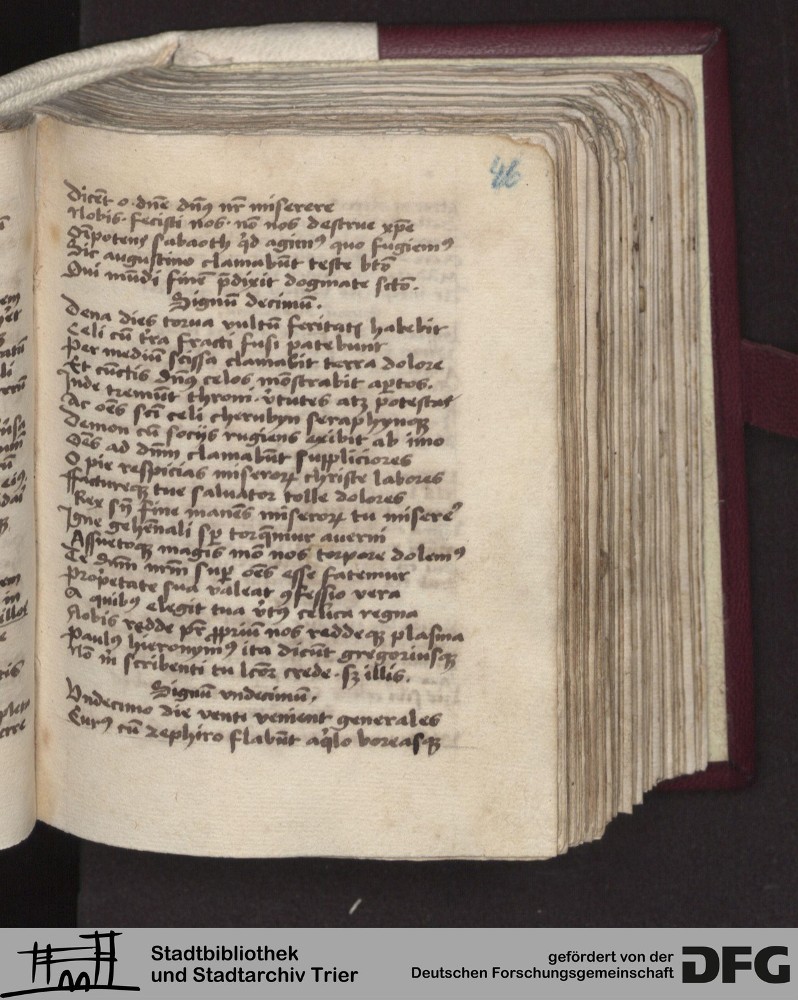 46
Dicēt o dn̄e dn̄ꝰ nr̄ miserere
Nobis fecisti nos nō nos destrue xp̄e
Oīpotens sabaoth qd agiemꝰ quo fugiemꝰ
Sic augustino clamabūt teste btō
Qui mūdi finē p̄dixit dogmate sctō.
Signū decimū.
Dena dies torua vultū feritatꝭ habebit
Celi cū tr̄a fracti fusi patebunt
Per mediū scissa clamabit terra dolore
Et cūctis dn̄ꝰ celos mōstrabit aꝑtos.
Inde tremūt throni v̄tutes atqꝫ potestat
Ac oēs scī celi cherubyn seraphynqꝫ
Demon cū socijs rugiens exibit ab imo
Oēs ad dn̄m clamabūt suppliciores
O pie respicias miseroꝝ christe labores
Ffactureqꝫ tue saluator tolle dolores
Rex sn̄ fine manēs miseroꝝ tu miserere
Igne gehēnali sꝑ torq̄mur auerni
Assuetoqꝫ magis mō nos torpore dolemꝰ
Te dn̄m nr̄m suꝑ oēs esse fatemur
Propetate sua valeat ꝯfessio vera
A quibꝰ elegit tua v̄tꝰ celica regna
Nobis redde pr̄ ꝓpriū nos reddeqꝫ plasma
Paulꝰ hieronymꝰ ita dicūt gregoriusqꝫ
Nō m̄ scribenti tu lc̄or crede sꝫ illis.
Signū vndecimū.
Vndecimo die venti venient generales
Eurꝰ cū zephiro flabūt aq̇lo boreasqꝫ
Stadtbibliothek
und Stadtarchiv Trier
gefördert von der
Deutschen Forschungsgemeinschaft
DFG